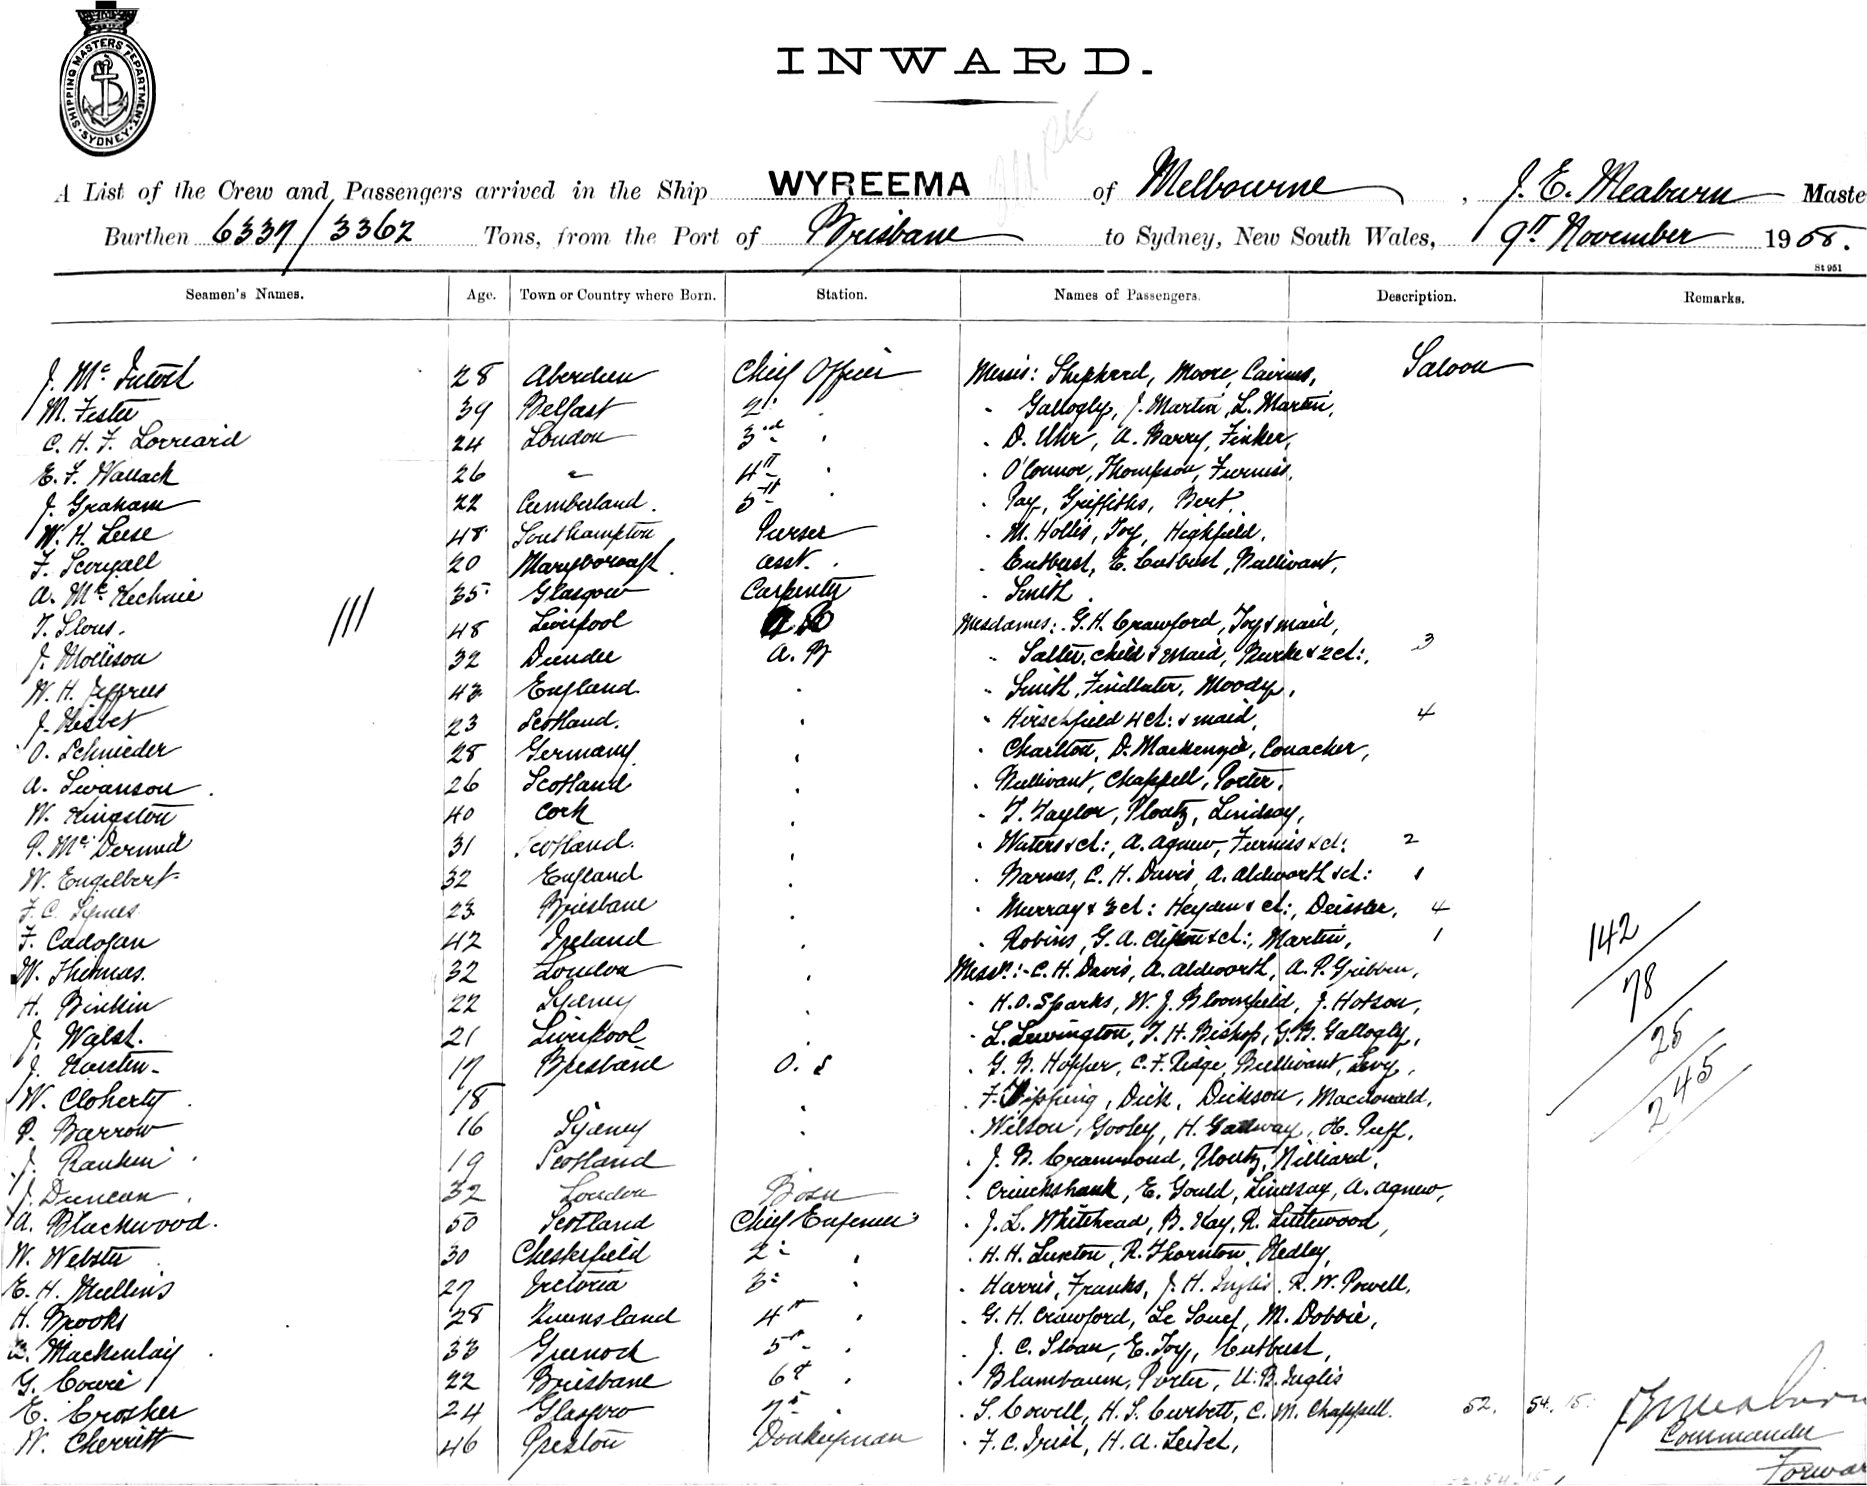 SHIPPING MASTERS DEPARTMENT. SYDNEY
INWARD.
A List of the Crew and Passengers arrived in the Ship WYREEMA of Melbourne, J. E. Meaburn Maste
Burthen 6337/3362 Tons, from the Port of Brisbane to Sydney, New South Wales, 9th November 1908.
St 951
Seamen's Names. Age. Town or Country where Born. Station. Names of Passengers. Description. Remarks.
J. Mc 28 Aberdeen Chief Officer Messrs: Shepherd, Moore, Cairns, Saloon
M. Fester 39 Belfast 2 " " Gallogly, J. Martin, L. Martin,
C. H. F. Lorreard 24 London 3rd " " D. Uhr, A. Barry, Finker,
E. F. Wallack 26 " 4th " " O'Connor, Thompson, Furniss,
J. Graham 22 Cumberland. 5th " " Griffiths, Bert,
W. H. Leese 48 Southampton Purser " M. Hollis, Joy, Highfield,
F. Scougall 20 Maryborough. asst. " Cutbush, E. Cutbush, Bullivant,
A. McKechnie 35 Glasgow Carpenter " Smith.
T. Slous. 48 Liverpool A B Mesdames: G. H. Crawford, Joy & maid,
J. Mollison 32 Dundee A. B " Salter, child & maid, Burke & 2 ch:, 3
W. H. Jeffries 43 England " " Smith, Findlater, Moody,
J. 23 Scotland. " " Hirschfield 4 ch: & maid, 4
O. Schnieder 28 Germany " " Charlton, D. Mackenzie, Conacher,
A. Swanson 26 Scotland " " Bullivant, Chappell, Porter,
W. Kingston 40 Cork " " T. Taylor, Ploutz, Lindsay,
P. McDermid 31 Scotland. " " Waters & ch:, A. Agnew, Furniss & ch: 2
W. Engelbert 32 England " " Barnes, C. H. Davis, A. Aldworth & ch: 1
F. C. Symes 23 Brisbane " " Murray & 3 ch: Heyden & ch:, Deissler, 4
F. Cadogan 42 Ireland " " Robins, G. A. & ch:, Martin, 1
W. Thomas. 32 London " Messrs:- C. H. Davis, A. Aldworth, A. P. Gribben, 142
H. 22 Sydney " " H. O. Sparks, W. J. Bloomfield, J. Hobson, 78
J. Walsh. 21 Liverpool " " L. Lewington, T. H. Bishop, G. B. Gallogly, 25
J. Karsten 17 Brisbane O. S " G. B. Hopper, C. F. Ridge, Bullivant, Levy, 245
W. Cloherty 18 " " F. Tipping, Dick, Dickson, Macdonald,
P. Barrow 16 Sydney " " Wilson, Gooley, H. Galway, H. Puff,
J. Rankin 19 Scotland " J. B. Crammond, Ploutz, Hilliard,
J. Duncan. 32 London Bosn " Cruickshank, E. Gould, Lindsay, A. Agnew,
A. Blackwood. 50 Scotland Chief Engineer " J. L. Whitehead, B. Kay, R. Littlewood,
W. Webster 30 Chesterfield 2 " " H. H. Luxton, R. Thornton, Hedley,
E. H. Mullins 27 Victoria 3 " " Harris, Franks, J. H. Inglis, R. W. Powell,
H. Brooks 28 Queensland 4th " " G. H. Crawford, Le Souef, M. Dobbie,
Mackinlay 33 Greenock 5th " " J. C. Sloan, E. Joy, Cutbush,
G. Cowie 22 Brisbane 6th " " Blumbaum, Porter, U. B. Inglis
E. Crosher 24 Glasgow 7th " " S. Cowell, H. S. Curbett, C. M. Chappell. 52. 54. 15. J E Meaburn
W. Cherritt 46 Preston Donkeyman " F. C. Irish, H. A. Leitch, Commander
Forwar